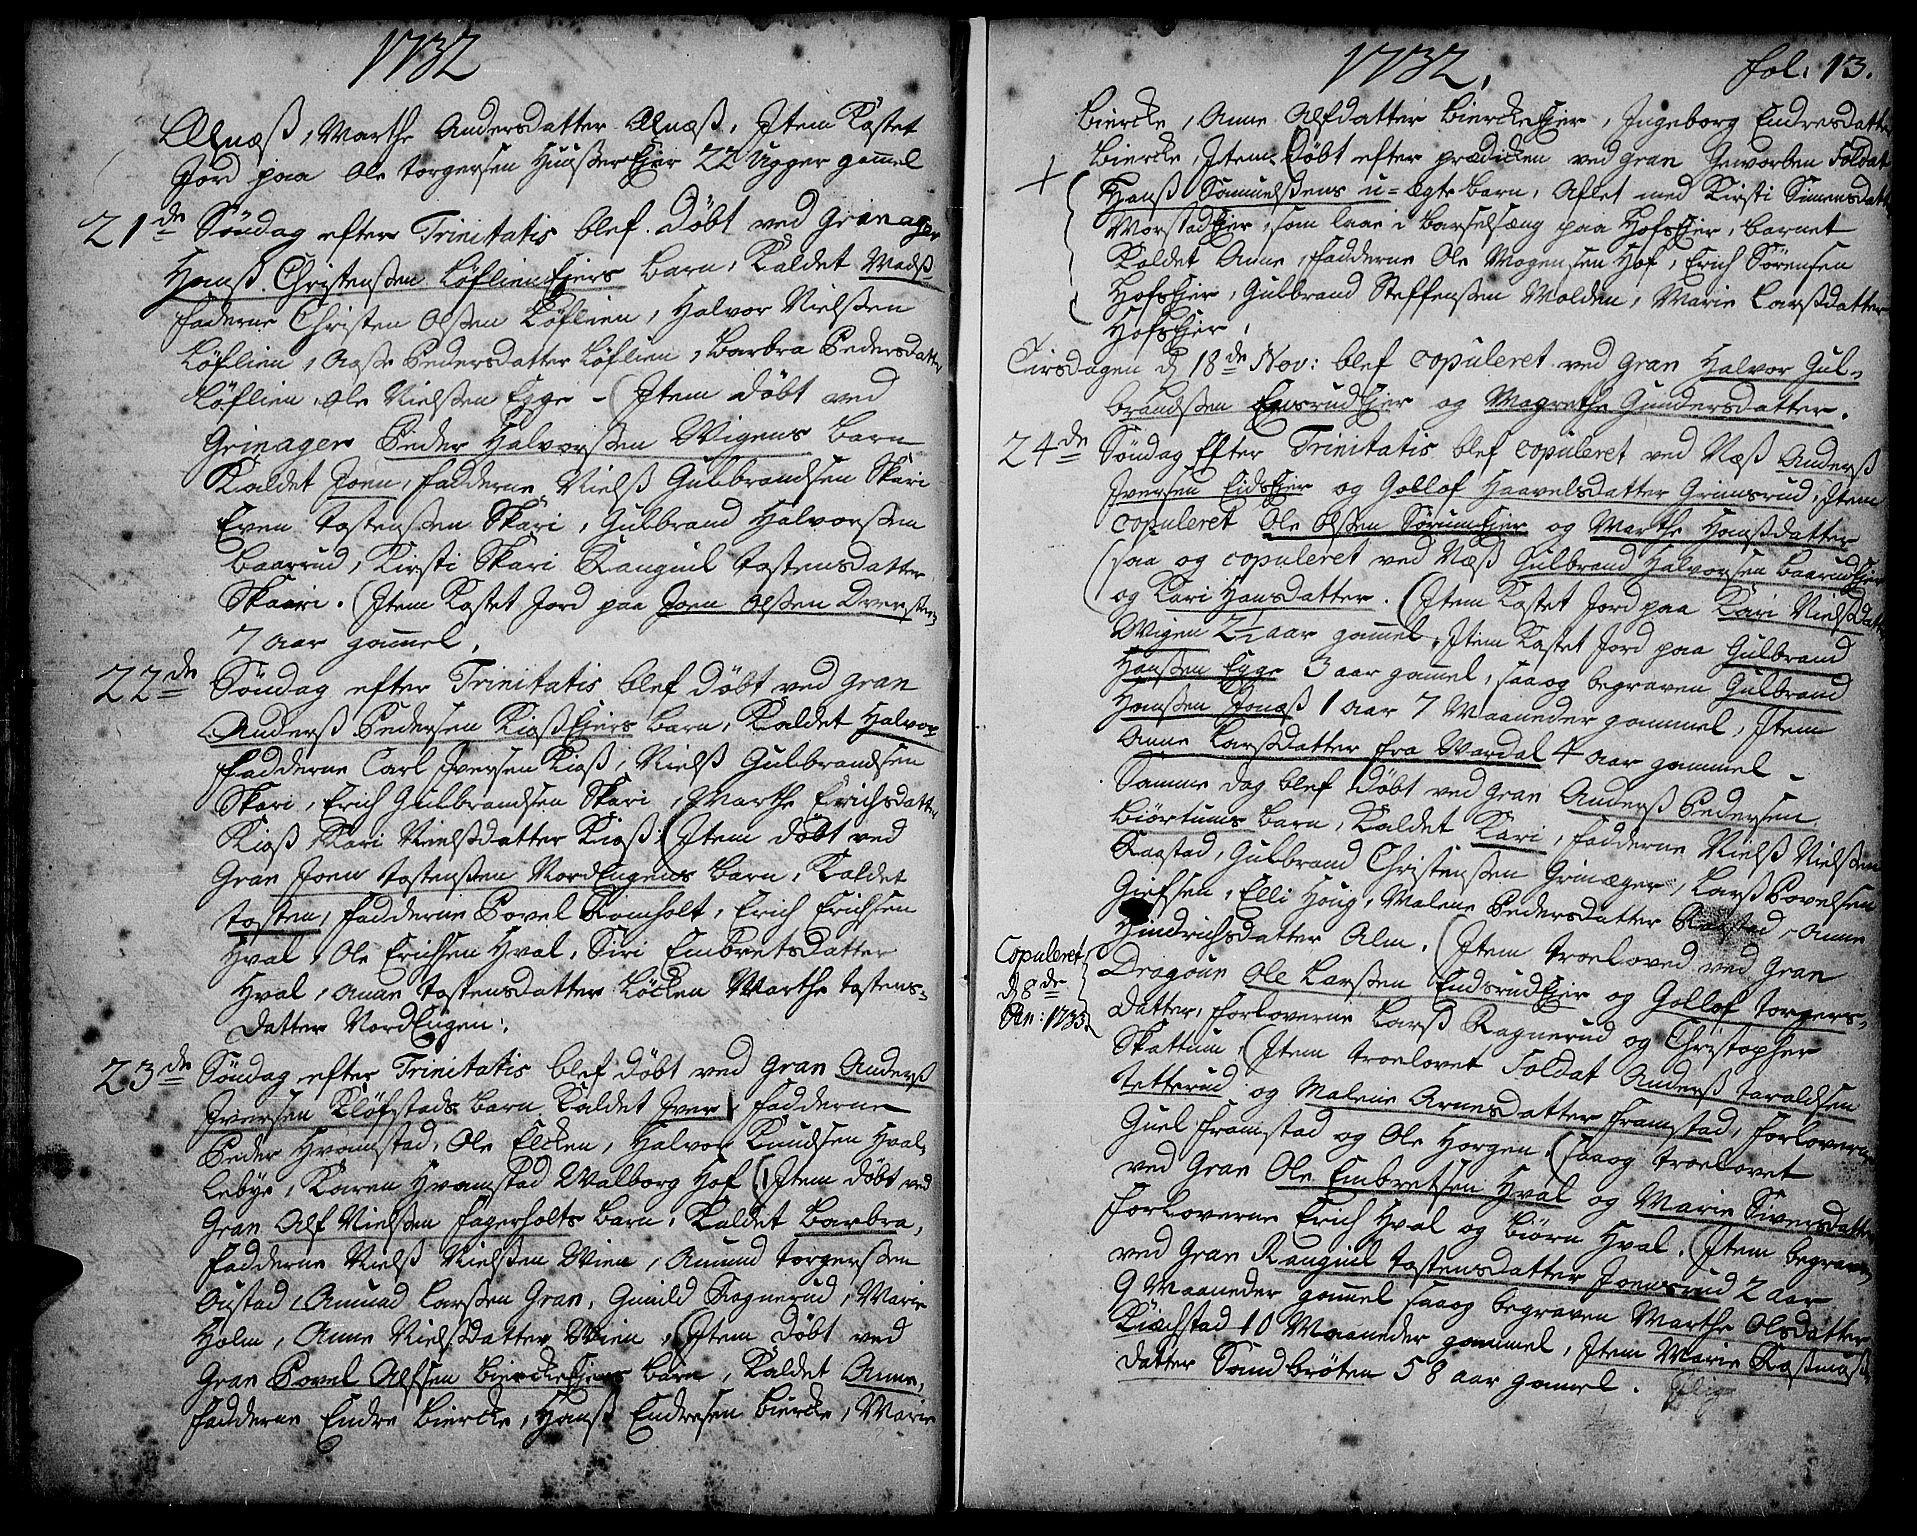 1732
Alnæß, Marthe Andersdatter Alnæß, Item Kastet
Jord paa Ole Torgersen Hunßeier 22 Uger gam̄el
21de Søndag efter Trinitatis blef Døbt ved Grinager
Hanß Christenßen Løflieneiers barn, Kaldet Madß
Fadderne Christen Olßen Løflien, Halvor Nielßen
Løflien, Aaße Pedersdatter Løflien, Barbra Pedersdatter
Løflien, Ole Nielßen Egge – (Item Døbt ved
Grinager Peder Halvorßen Wigens barn
Kaldet Joen, Fadderne Nielß Gulbrandsen Skari
Even Tostenßen Skari, Gulbrand Halvorßen
Baarud, Kirsti Skari Ranguil Tostensdatter
Skaari. (Item Kastet Jord paa Joen Olßen
7 aar gam̄el,
22de Søndag efter Trinitatis blef Døbt ved Gran
Anderß Pedersen Kiøßeiers barn, Kaldet Halvor
Fadderne Carl Iversen Kioß, Nielß Gulbrandsen
Skari, Erich Gulbrandsen Skari, Marthe Erichsdatter
Kioß, Kari Nielßdatter Kioß, (Item Døbt ved
Gran Joen Tostenßen NordEngens barn, Kaldet
Tosten, Fadderne Povel Romholt, Erich Erichsen
Hval, Ole Erichsen Hval, Siri EmbretsDatter
Hval, Anne Tostensdatter Løcken Marthe Tostens-
datter NordEngen,
23de Søndag efter Trinitatis blef Døbt ved Gran Anderß
Iversen Kløfstads barn Kaldet Iver, Fadderne
Peder Hvamstad, Ole Elcken, Halvor Knudsen Hval-
lebye, Karen Hvamstad Walborg Hof (Item Døbt ved
Gran Alf Nielßen Fagerholts barn, Kaldet Barbra,
Fadderne Nielß Nielßen Wien, Amund Torgerßen
Oustad, Amund Larßen Gran, Gunild Rognerud, Marie
Holm, Anne Nielßdatter Wien, (Item Døbt ved
Gran Povel Alfsen Bierckeeiers barn, Kaldet Anne,
Fadderne Endre Biercke, Hanß Endresen Biercke, Marie
1732. Fol. 13.
Biercke, Anne Alfdatter Bierckeeier, Ingeborg Endresdatter
Biercke, Item Døbt efter prædicken ved Gran Geworben Soldat
Hanß Samuelßens u-egte barn, Aflet med Kirsti Simensdatter
Morstadeier, som laae i barselsæng paa Hofseier, barnet
Kaldet Anne, Fadderne Ole Mogensen Hof, Erich Sørensen
Hofseier, Gulbrand Steffenßen Molden, Marie Larßdatter
Hofseier,
Tirsdagen d 18de Nov: blef copuleret ved Gran Halvor Gul-
brandßen Egsrudeier og Magrethe Gundersdatter.
24de Søndag Efter Trinitatis blef copuleret ved Næß Anderß
Iversen Eidseier og Golløf Haavelsdatter Grimsrud, Item
copuleret Ole Olßen Sørumeier og Marthe Hanßdatter
(saa og copuleret ved Næß Gulbrand Halvorsen Baarudeier
og Kari Hansdatter. (Item Kastet Jord paa Kari Nielßdatter
Wigen 2½ aar gam̄el, Item Kastet Jord paa Gulbrand
Hanßen Egge 3 aar gam̄el, saaog begraven Gulbrand
Hanßen Jonæß 1 aar 7 Maaneder gammel, Item
Anne Larßdatter fra Wardal 4 aar gammel –
Samme Dag blef Døbt ved Gran Anderß Pedersen
Biørtums barn, Kaldet Kari, Fadderne Nielß Nielßen
Raastad, Gulbrand Christenßen Grinæger, Larß Povelsen
Giefsen, Elli Houg, Malene Pedersdatter Raastad, Anne
Hindrichsdatter Alm. (Item troeloved ved Gran
Copuleret
d 8de
Jan: 1733.
Dragoun Ole Larßen Endsrudeier og Golløf Torgers-
datter, Forloverne Larß Ragnerud og Christopher
Skattum, (Item troelovet Soldat Anderß Taraldsen
Tetterud og Malene ArnesDatter Framstad, Forloverne
Guel Framstad og Ole Horgen, (saaog troelovet
ved Gran Ole Embretsen Hval og Marie Siversdatter
Forloverne Erich Hval og Biørn Hval. (Item begraven
ved Gran Ranguil Tostensdatter Joensrud 2 aar
9 Maaneder gam̄el saaog begraven Marthe Olsdatter
Kiøchstad 10 Maaneder gammel, Item Marie Raßmus-
datter Sandbrøten 58 aar gam̄el.